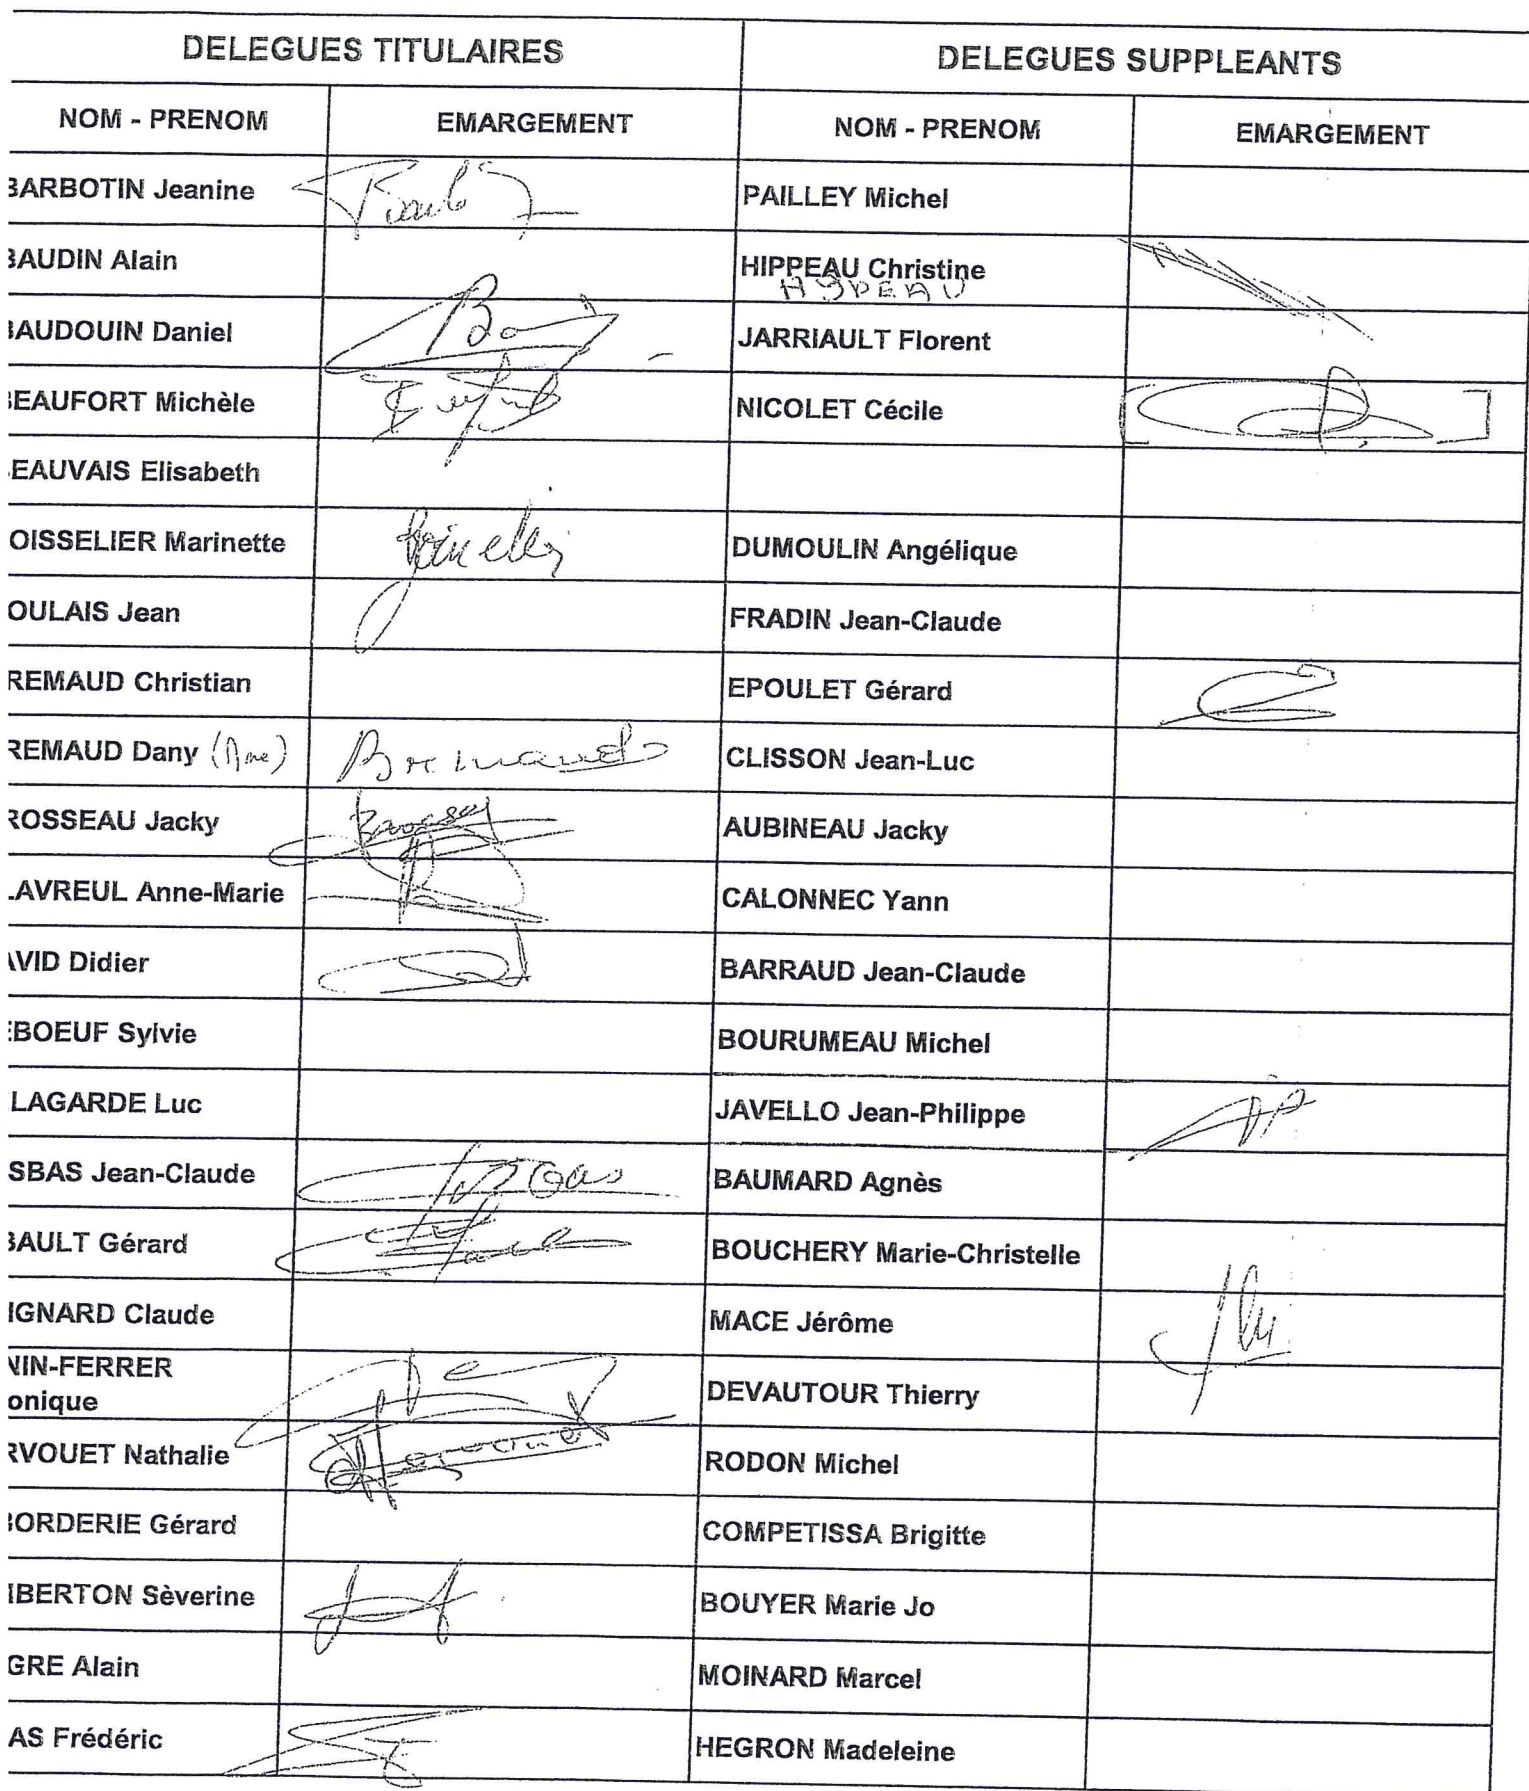 DELEGUES TITULAIRES DELEGUES SUPPLEANTS
NOM - PRENOM EMARGEMENT NOM - PRENOM EMARGEMENT
BARBOTIN Jeanine PAILLEY Michel
BAUDIN Alain HIPPEAU Christine
BAUDOUIN Daniel JARRIAULT Florent
BEAUFORT Michèle NICOLET Cécile
EAUVAIS Elisabeth
OISSELIER Marinette DUMOULIN Angélique
OULAIS Jean FRADIN Jean-Claude
REMAUD Christian EPOULET Gérard
REMAUD Dany (Mme) Bremaud CLISSON Jean-Luc
ROSSEAU Jacky AUBINEAU Jacky
LAVREUL Anne-Marie CALONNEC Yann
AVID Didier BARRAUD Jean-Claude
EBOEUF Sylvie BOURUMEAU Michel
LAGARDE Luc JAVELLO Jean-Philippe
SBAS Jean-Claude BAUMARD Agnès
BAULT Gérard BOUCHERY Marie-Christelle
IGNARD Claude MACE Jérôme
NIN-FERRER
onique DEVAUTOUR Thierry
RVOUET Nathalie RODON Michel
BORDERIE Gérard COMPETISSA Brigitte
MBERTON Sèverine BOUYER Marie Jo
GRE Alain MOINARD Marcel
AS Frédéric HEGRON Madeleine